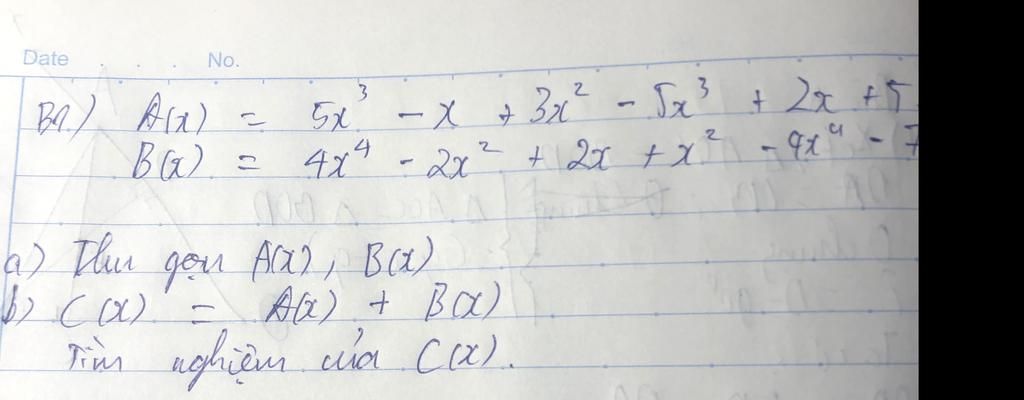 Date . . . No.
B1.) A(x) = 5x³ - x + 3x² - 5x³ + 2x + 5
B(x) = 4x⁴ - 2x² + 2x + x² - 4x⁴ - 7
a) Thu gọn A(x), B(x)
b) C(x) = A(x) + B(x)
Tìm nghiệm của C(x).